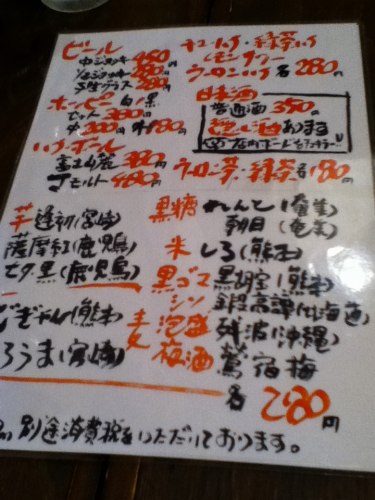 ビール
中ジョッキ 450
1/2ジョッキー 280円
S生グラス 280
ホッピー 白/黒
セット 380円
外 200円 中180円
ハイボール
富士山麓 380円
モルト 480円
ウーロンハイ 各280円
日本酒
普通酒 350円
あります
店内ボードを
ウーロン茶・緑茶 各180円
芋 逢初(宮崎)
薩摩紅(鹿児島)
七夕 黒(鹿児島)
ぎゃん(熊本)
ろうま(宮崎)
黒糖 れんと(奄美)
朝日(奄美)
米 しろ(熊本)
黒ゴマ 黒胡宝(熊本)
シソ 鍛高譚(北海道)
泡盛 残波(沖縄)
梅酒 鶯宿梅
各 280円
別途消費税をいただいております。